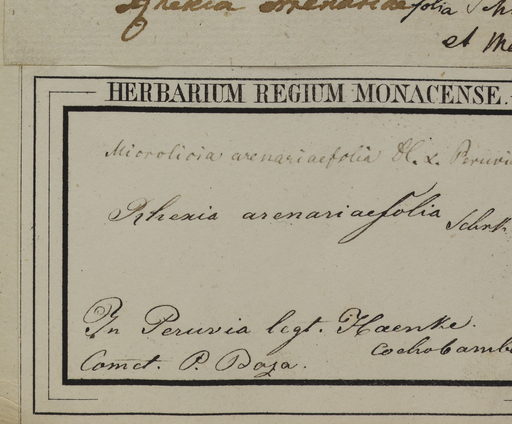 Rhexia arenariaefolia Schr
et Ma
HERBARIUM REGIUM MONACENSE.
Microlicia arenariaefolia DC. Peruvi
Rhexia arenariaefolia Schrk
In Peruvia legt. Haenke.
Cochobamb
Comct. P. Boza.